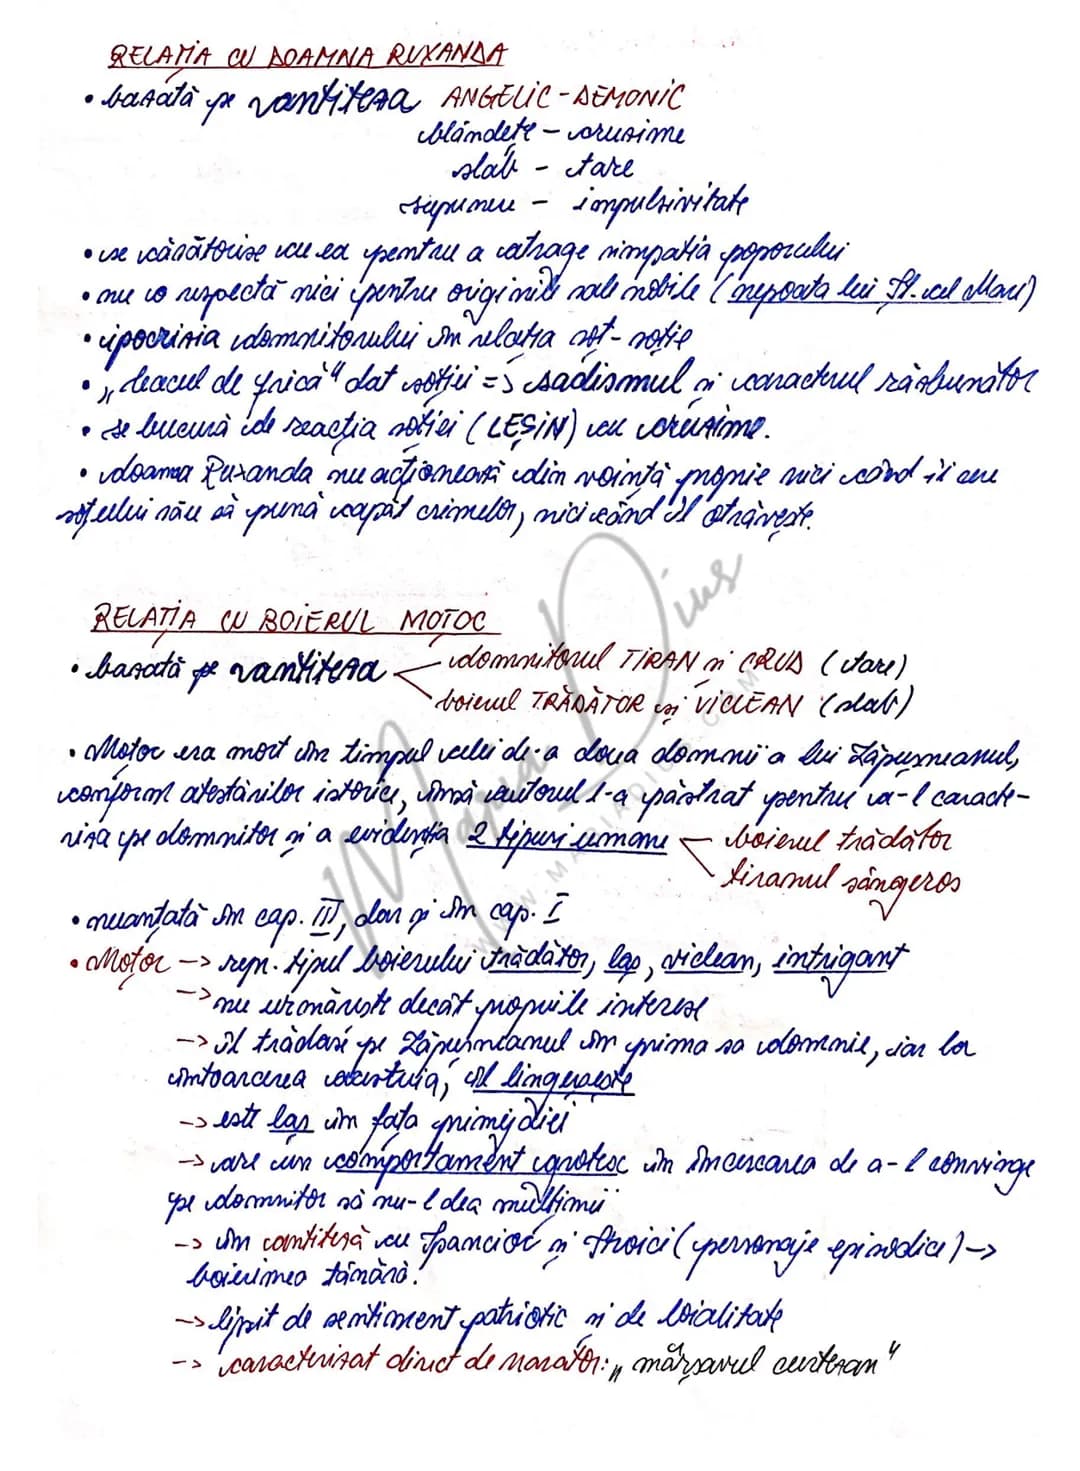 RELAȚIA CU DOAMNA RUXANDA
• bazată pe antiteza ANGELIC - DEMONIC
blândețe - cruzime
slab - tare
supunere - impulsivitate
• se căsătorise cu ea pentru a atrage simpatia poporului
• nu o respectă nici pentru originile sale nobile (nepoata lui Șt. cel Mare)
• ipocrizia domnitorului în relația soț - soție
• „leacul de frică" dat soției => sadismul și caracterul răzbunător
• se bucură de reacția soției (LEȘIN) cu cruzime.
• doamna Ruxanda nu acționează din voință proprie nici când îi cere
soțului său să pună capăt crimelor, nici când îl otrăvește.
RELAȚIA CU BOIERUL MOȚOC
• bazată pe antiteza
domnitorul TIRAN și CRUD (tare)
boierul TRĂDĂTOR și VICLEAN (slab)
• Moțoc era mort în timpul celei de-a doua domnii a lui Lăpușneanul,
conform atestărilor istorice, însă autorul l-a păstrat pentru a-l caracte-
riza pe domnitor și a evidenția 2 tipuri umane
boierul trădător
tiranul sângeros
• nuanțată în cap. III, dar și în cap. I
• Moțoc -> repr. tipul boierului trădător, laș, viclean, intrigant
-> nu urmărește decât propriile interese
-> îl trădase pe Lăpușneanul în prima sa domnie, iar la
întoarcerea acestuia, îl lingușește
-> este laș în fața primejdiei
-> are un comportament grotesc în încercarea de a-l convinge
pe domnitor să nu-l dea mulțimii
-> în antiteză cu Spancioc și Stroici (personaje episodice) ->
boierimea tânără.
-> lipsit de sentiment patriotic și de loialitate
-> caracterizat direct de narator: „mârșavul curtezan"
Maria Dius
WWW.MARIADIUS.COM